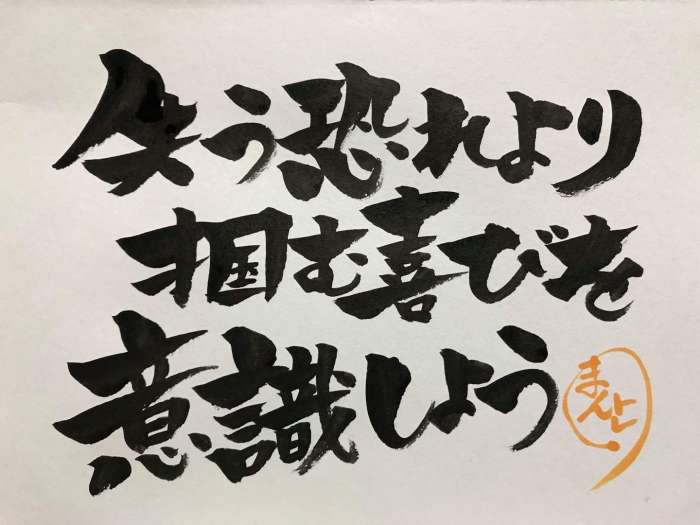 失う恐れより
掴む喜びを
意識しよう